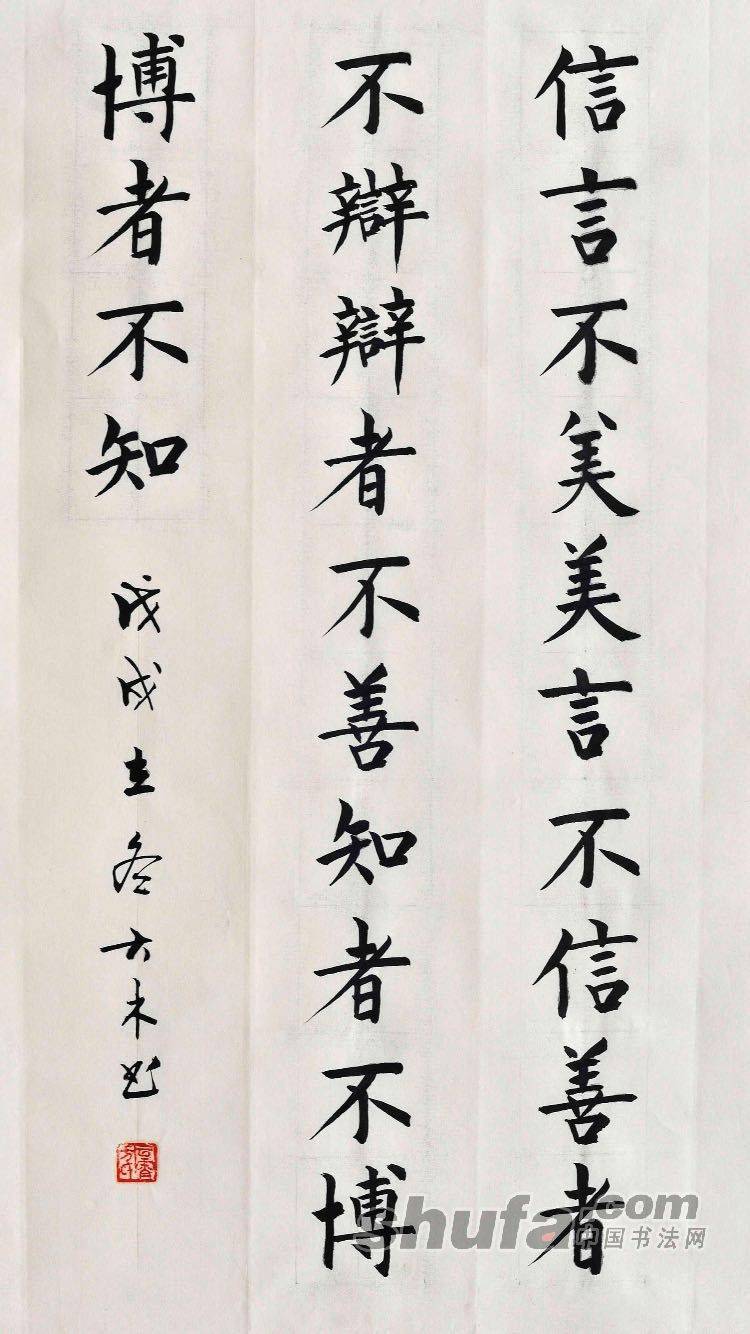 信言不美美言不信善者
不辯辯者不善知者不博
博者不知
戊戌立冬大木书
shufa.com
中国书法网